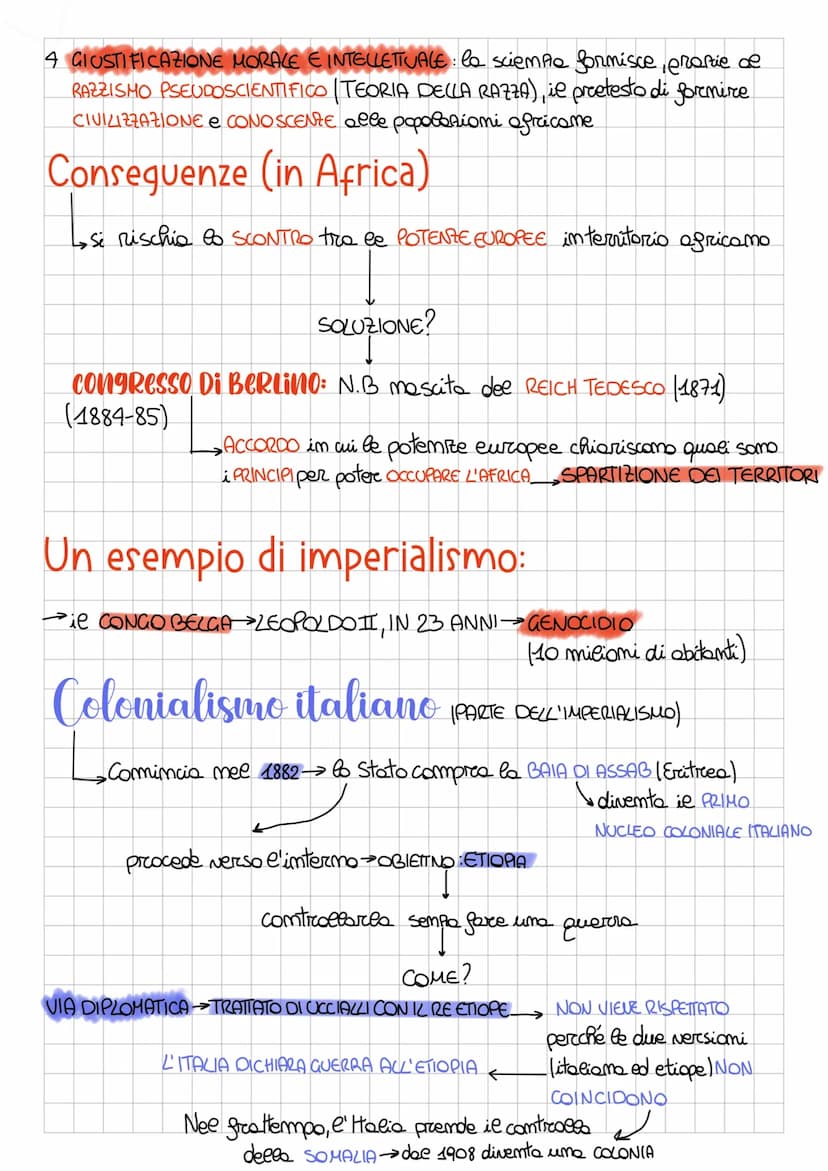 4 GIUSTIFICAZIONE MORALE E INTELLETTUALE: la scienza fornisce, grazie al
RAZZISMO PSEUDOSCIENTIFICO (TEORIA DELLA RAZZA), il pretesto di fornire
CIVILIZZAZIONE e CONOSCENZE alle popolazioni africane
Conseguenze (in Africa)
↳ si rischia lo SCONTRO tra le POTENZE EUROPEE in territorio africano
SOLUZIONE?
CONGRESSO DI BERLINO: N.B nascita del REICH TEDESCO (1871)
(1884-85)
↳ ACCORDO in cui le potenze europee chiariscono quali sono
i PRINCIPI per poter OCCUPARE L'AFRICA → SPARTIZIONE DEI TERRITORI
Un esempio di imperialismo:
→ il CONGO BELGA → LEOPOLDO II, IN 23 ANNI → GENOCIDIO
(10 milioni di abitanti)
Colonialismo italiano (PARTE DELL'IMPERIALISMO)
↳ Comincia nel 1882 → lo Stato compra la BAIA DI ASSAB (Eritrea)
↘ diventa il PRIMO
NUCLEO COLONIALE ITALIANO
procede verso l'interno → OBIETTIVO: ETIOPIA
controllarla senza fare una guerra
COME?
VIA DIPLOMATICA → TRATTATO DI UCCIALLI CON IL RE ETIOPE → NON VIENE RISPETTATO
perché le due versioni
L'ITALIA DICHIARA GUERRA ALL'ETIOPIA ← (italiana ed etiope) NON
COINCIDONO
Nel frattempo, l'Italia prende il controllo
della SOMALIA → dal 1908 diventa una COLONIA